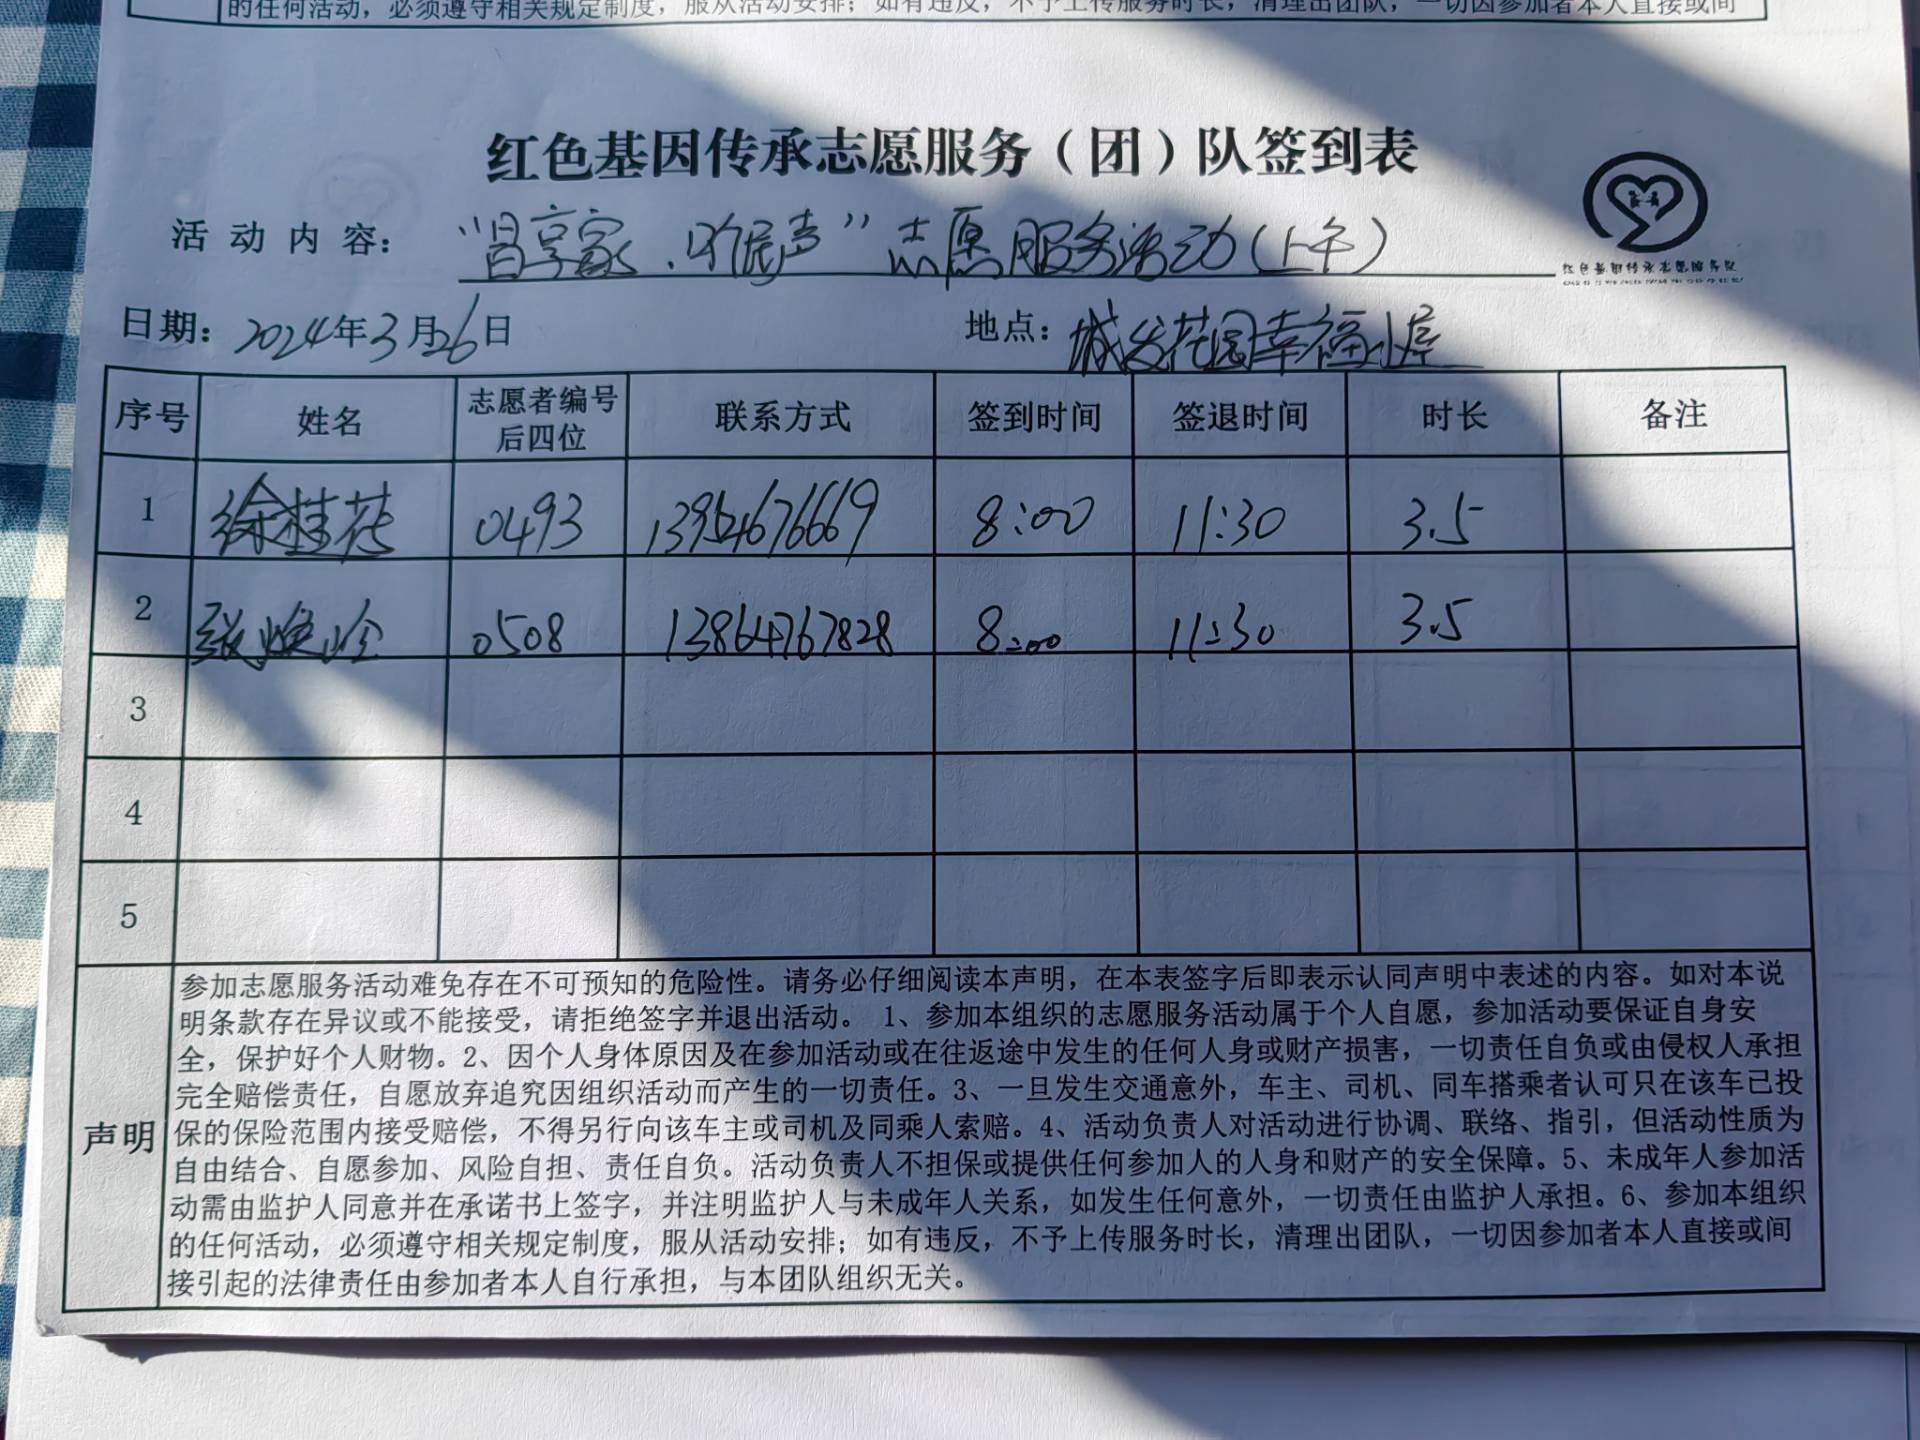 的任何活动，必须遵守相关规定制度，服从活动安排；如有违反，不予上传服务时长，清理出团队，一切因参加者本人直接或间
红色基因传承志愿服务（团）队签到表
活动内容： 志愿服务活动（上午）
红色基因传承志愿服务队
日期：2024年3月26日 地点：城发花园幸福小屋
序号 姓名 志愿者编号后四位 联系方式 签到时间 签退时间 时长 备注
1 徐桂花 0493 13954676669 8:00 11:30 3.5
2 张焕玲 0508 13864767828 8:00 11:30 3.5
3
4
5
声明
参加志愿服务活动难免存在不可预知的危险性。请务必仔细阅读本声明，在本表签字后即表示认同声明中表述的内容。如对本说
明条款存在异议或不能接受，请拒绝签字并退出活动。 1、参加本组织的志愿服务活动属于个人自愿，参加活动要保证自身安
全，保护好个人财物。2、因个人身体原因及在参加活动或在往返途中发生的任何人身或财产损害，一切责任自负或由侵权人承担
完全赔偿责任，自愿放弃追究因组织活动而产生的一切责任。3、一旦发生交通意外，车主、司机、同车搭乘者认可只在该车已投
保的保险范围内接受赔偿，不得另行向该车主或司机及同乘人索赔。4、活动负责人对活动进行协调、联络、指引，但活动性质为
自由结合、自愿参加、风险自担、责任自负。活动负责人不担保或提供任何参加人的人身和财产的安全保障。5、未成年人参加活
动需由监护人同意并在承诺书上签字，并注明监护人与未成年人关系，如发生任何意外，一切责任由监护人承担。6、参加本组织
的任何活动，必须遵守相关规定制度，服从活动安排；如有违反，不予上传服务时长，清理出团队，一切因参加者本人直接或间
接引起的法律责任由参加者本人自行承担，与本团队组织无关。